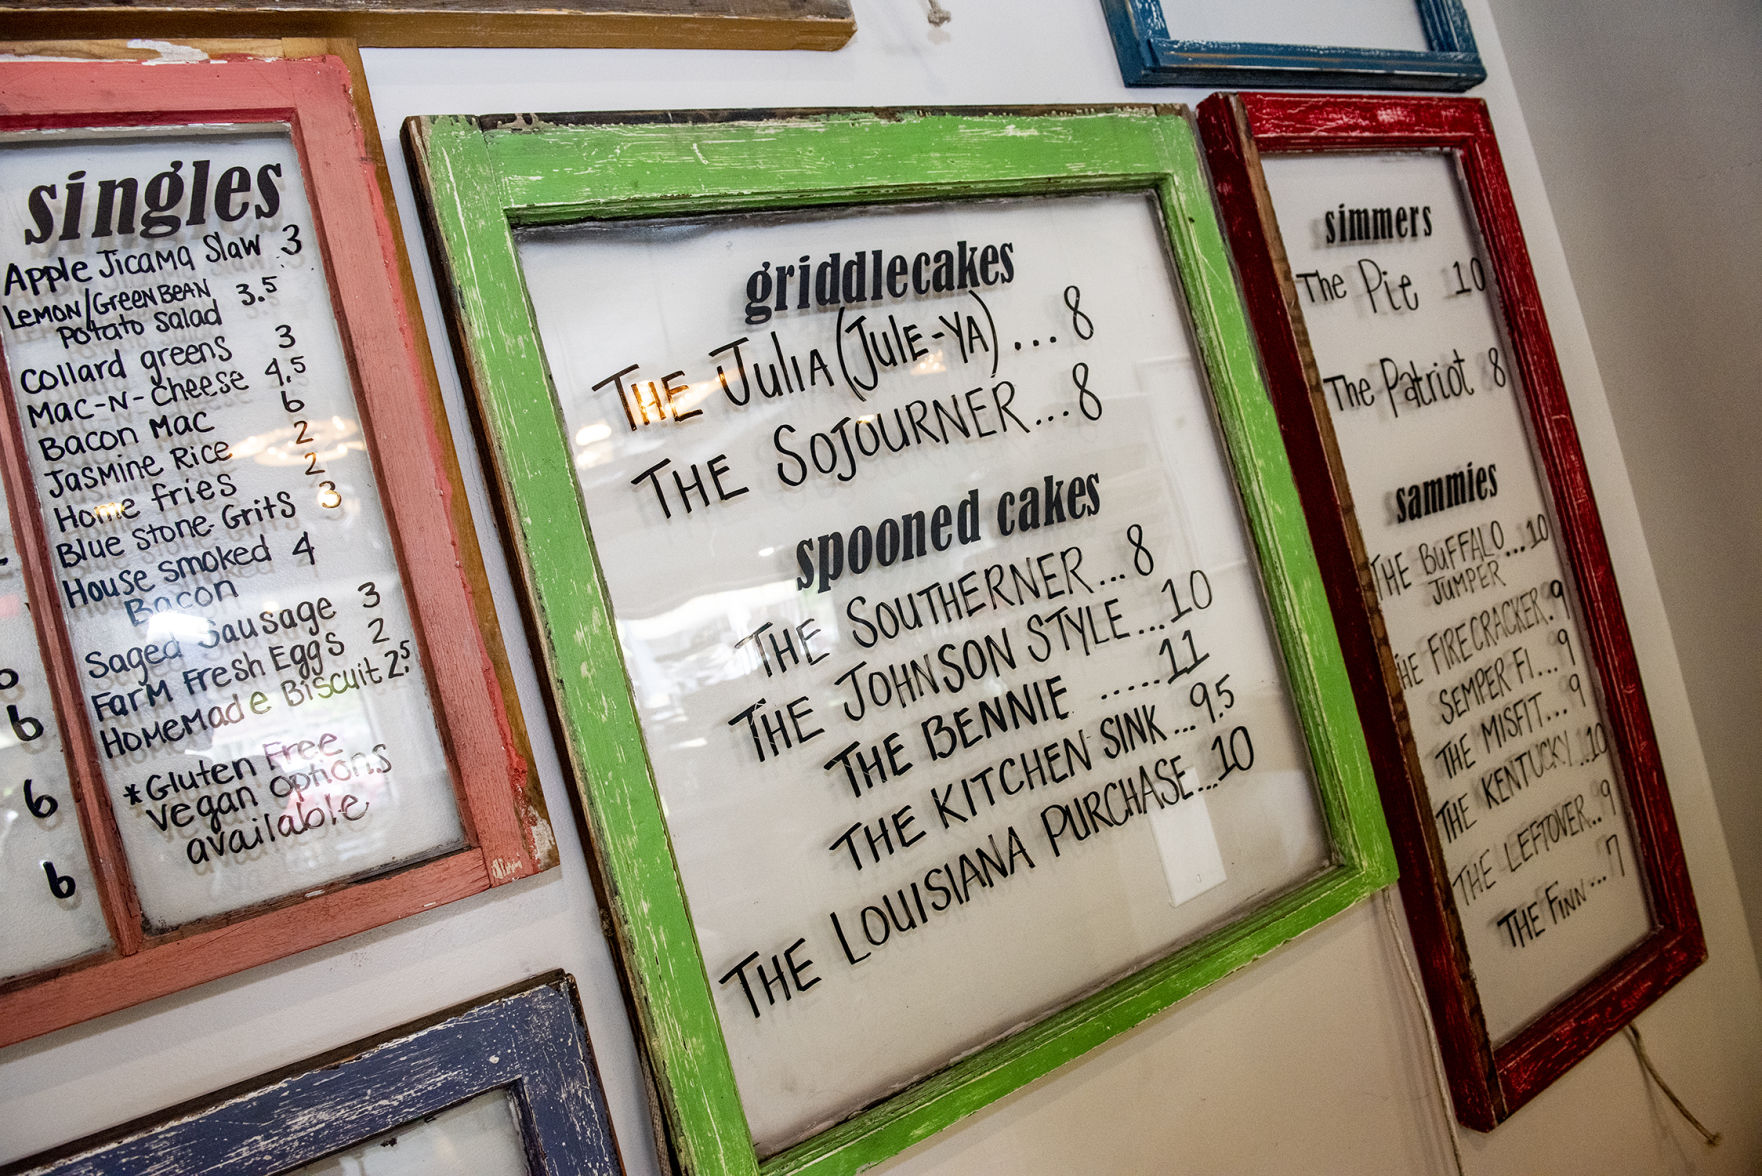 singles
Apple Jicama Slaw 3
Lemon/Green Bean 3.5
Potato Salad
Collard greens 3
Mac-N-Cheese 4.5
Bacon Mac 6
Jasmine Rice 2
Home fries 2
Blue Stone Grits 3
House smoked 4
Bacon
Saged Sausage 3
Farm Fresh Eggs 2
Homemade Biscuit 2.5
*Gluten Free
Vegan options
available
6
6
6
griddlecakes
THE JULIA (JULE-YA)...8
THE SOJOURNER...8
spooned cakes
THE SOUTHERNER...8
THE JOHNSON STYLE...10
THE BENNIE .....11
THE KITCHEN SINK...9.5
THE LOUISIANA PURCHASE...10
simmers
The Pie 10
The Patriot 8
sammies
THE BUFFALO...10
JUMPER
THE FIRECRACKER.9
SEMPER FI...9
THE MISFIT...9
THE KENTUCKY...10
THE LEFTOVER..9
THE FINN...7